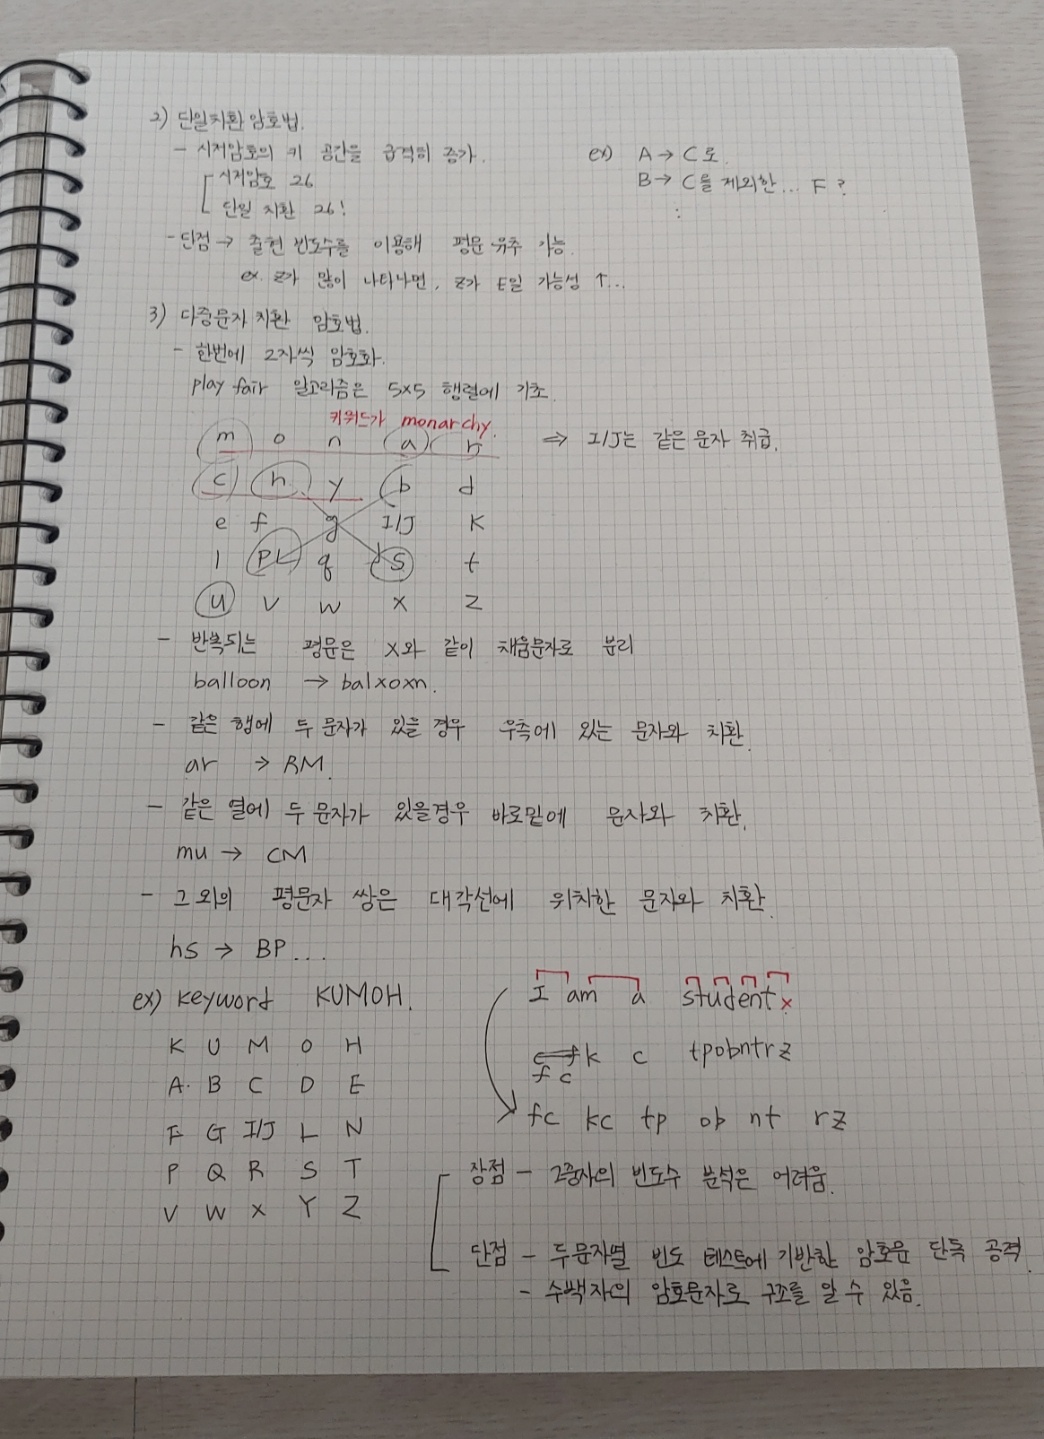 2) 단일치환 암호법.
- 시저암호의 키 공간을 급격히 증가.
시저암호 26
단일 치환 26!
ex) A → C로.
B → C를 제외한... F?
:
- 단점 → 출현 빈도수를 이용해 평문 유추 가능.
ex. Z가 많이 나타나면, Z가 E일 가능성 ↑...
3) 다중문자 치환 암호법.
- 한번에 2자씩 암호화.
play fair 알고리즘은 5x5 행렬에 기초.
키워드가 monarchy.
m o n a r ⇒ I/J는 같은 문자 취급.
c h y b d
e f g I/J K
l p q s t
u v w x z
- 반복되는 평문은 X와 같이 채움문자로 분리
balloon → balxoxn.
- 같은 행에 두 문자가 있을 경우 우측에 있는 문자와 치환.
ar → RM.
- 같은 열에 두 문자가 있을경우 바로밑에 문자와 치환.
mu → CM
- 그 외의 평문자 쌍은 대각선에 위치한 문자와 치환.
hs → BP...
ex) keyword KUMOH.
K U M O H
A B C D E
F G I/J L N
P Q R S T
V W X Y Z
I am a student x
k c tpobntrz
f c
fc kc tp ob nt rz
장점 - 2중자의 빈도수 분석은 어려움.
단점 - 두문자열 빈도 테스트에 기반한 암호문 단독 공격.
- 수백자의 암호문자로 구조를 알 수 있음.